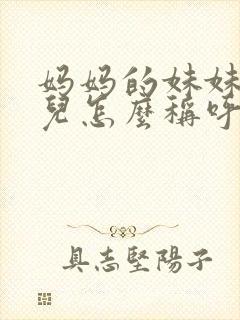 妈妈的妹妹
兒怎麼稱呼
具志堅陽子